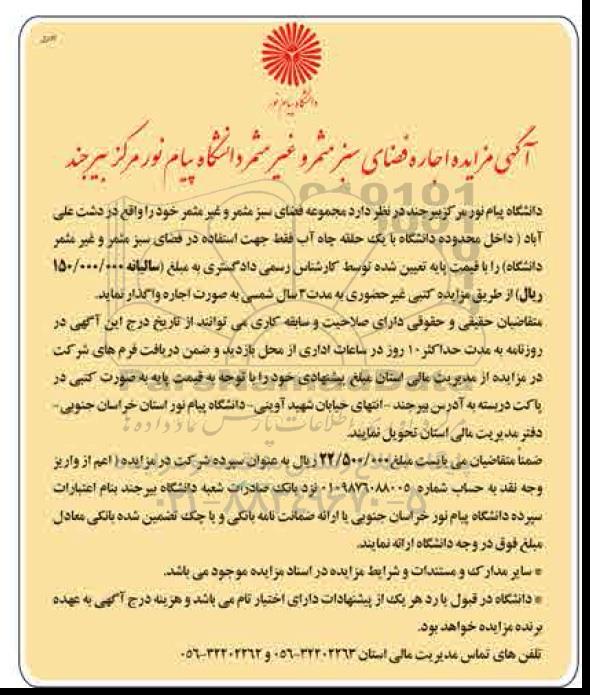 دانشگاه پیام نور
آگهی مزایده اجاره فضای سبز مثمر و غیر مثمر دانشگاه پیام نور مرکز بیرجند
دانشگاه پیام نور مرکز بیرجند در نظر دارد مجموعه فضای سبز مثمر و غیر مثمر خود را واقع در دشت علی
آباد ( داخل محدوده دانشگاه با یک حلقه چاه آب فقط جهت استفاده در فضای سبز مثمر و غیر مثمر
دانشگاه) را با قیمت پایه تعیین شده توسط کارشناس رسمی دادگستری به مبلغ (سالیانه ۱۵۰/۰۰۰/۰۰۰
ریال) از طریق مزایده کتبی غیر حضوری به مدت ۳ سال شمسی به صورت اجاره واگذار نماید.
متقاضیان حقیقی و حقوقی دارای صلاحیت و سابقه کاری می توانند از تاریخ درج این آگهی در
روزنامه به مدت حداکثر ۱۰ روز در ساعات اداری از محل بازدید و ضمن دریافت فرم های شرکت
در مزایده از مدیریت مالی استان مبلغ پیشنهادی خود را با توجه به قیمت پایه به صورت کتبی در
پاکت دربسته به آدرس بیرجند - انتهای خیابان شهید آوینی- دانشگاه پیام نور استان خراسان جنوبی-
دفتر مدیریت مالی استان تحویل نمایند.
ضمناً متقاضیان می بایست مبلغ ۲۲/۵۰۰/۰۰۰ ریال به عنوان سپرده شرکت در مزایده ( اعم از واریز
وجه نقد به حساب شماره ۰۱۰۹۸۷۶۰۸۸۰۰۵ نزد بانک صادرات شعبه دانشگاه بیرجند بنام اعتبارات
سپرده دانشگاه پیام نور خراسان جنوبی یا ارائه ضمانت نامه بانکی و یا چک تضمین شده بانکی معادل
مبلغ فوق در وجه دانشگاه ارائه نمایند.
* سایر مدارک و مستندات و شرایط مزایده در اسناد مزایده موجود می باشد.
* دانشگاه در قبول یا رد هر یک از پیشنهادات دارای اختیار تام می باشد و هزینه درج آگهی به عهده
برنده مزایده خواهد بود.
تلفن های تماس مدیریت مالی استان ۳۲۲۰۲۲۶۳-۰۵۶ و ۳۲۲۰۲۲۶۲-۰۵۶